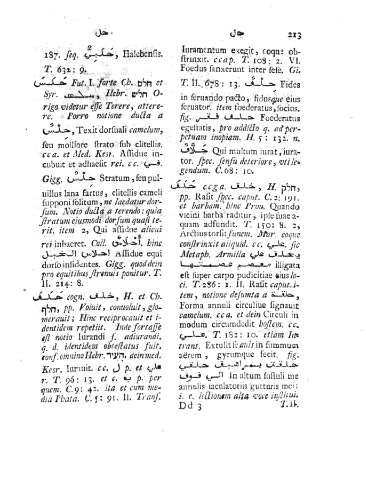 حل
حل
213
187. seq. حَلَبِيّ, Halebensis.
T. 632: 9.
Fut. I. forte Ch.
Syr. Hebr. O-
rigo videtur esse Terere, attere-
re. Porro notione ducta a
حِلْس, Texit dorsuali camelum,
seu mollsore strato sub clitellis.
cc a. et Med. Kesr. Assidue in-
cubuit et adhaesit rei. cc. فى.
Gigg. حِلْس Stratum, seu pul-
villus lana fartus, clitellis cameli
supponi solitum, ne laedatur dor-
sum. Notio ducta a terendo: quia
stratum eiusmodi dorsum quasi te-
rit. item 2, Qui assidue alicui
rei inhaeret. Coll. احلاس. hinc
احلاس الخيل Assidue equi
dorso insidentes. Gigg. quod dein
pro equitibus strenuis ponitur. T.
II. 214: 8.
حَلَفَ cogn. خلف, H. et Ch.
חלף, pp. Volvit, convoluit, glo-
meravit; Hinc reciprocavit et i-
dentidem repetiit. Inde fortasse
est notio Iurandi s. adiurandi,
q. d. identidem obtestatus fuit,
conf. omnino Hebr. העיד. dein med.
Kesr. Iuravit. cc. ل p. et على
r. T. 96: 13. et cc. ب p. per
quem. C. 9: 42. ita et cum me-
dia Phata. C. 5: 91. II. Trans.
Iuramentum exegit, eoque ob-
strinxit. cc a p. T. 108: 2. VI.
Foedus sanxerunt inter sese. Gi.
T. II. 678: 13. حِلْف Fides
in feriundo pacto, fidusque eius
servator. item foederatus, socius,
fig. حليف فقر Foederatus
egestatis, pro addicto q. ad per-
petuam inopiam. H. 5: 132. n.
حَلَّاف Qui multum iurat, iura-
tor. spec. sensu deteriore, uti le-
gendum. C. 68: 10.
حَلَقَ cc g a. خلف, H. חלק,
pp. Rasit spec. caput. C. 2: 191.
et barbam. hinc Prov. Quando
vicini barba raditur, ipse suae a-
quam adfundit. T. 150: 8. 2,
Arctius torsit funem. Mor. eoque
constrinxit aliquid. cc. على. sic
Metaph. Armilla على
معصم عصمتها illigata
est super carpo pudicitiae eius lo-
ci. T. 286: 1. II. Rasit caput. i-
tem, notione desumta a حلقة,
Forma annuli circulive signavit
camelum. cc a. et dein Circuli in
modum circumdedit hostem. cc.
على. T. 182: 10. etiam In-
trans. Extulit se avis in summum
aërem, gyrumque fecit. fig.
الى فوق In altum sustuli me
annalis iaculatoris gutturis mei:
i. e. lectionem alta voce institui.
D d 3
T. ib.